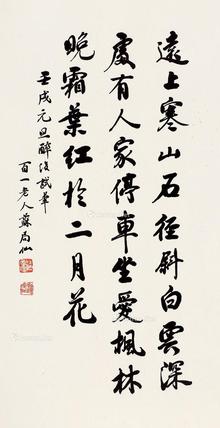 遠上寒山石徑斜白雲深
處有人家停車坐愛楓林
晚霜葉紅於二月花
壬戌元旦醉後試筆
百一老人蘇局仙